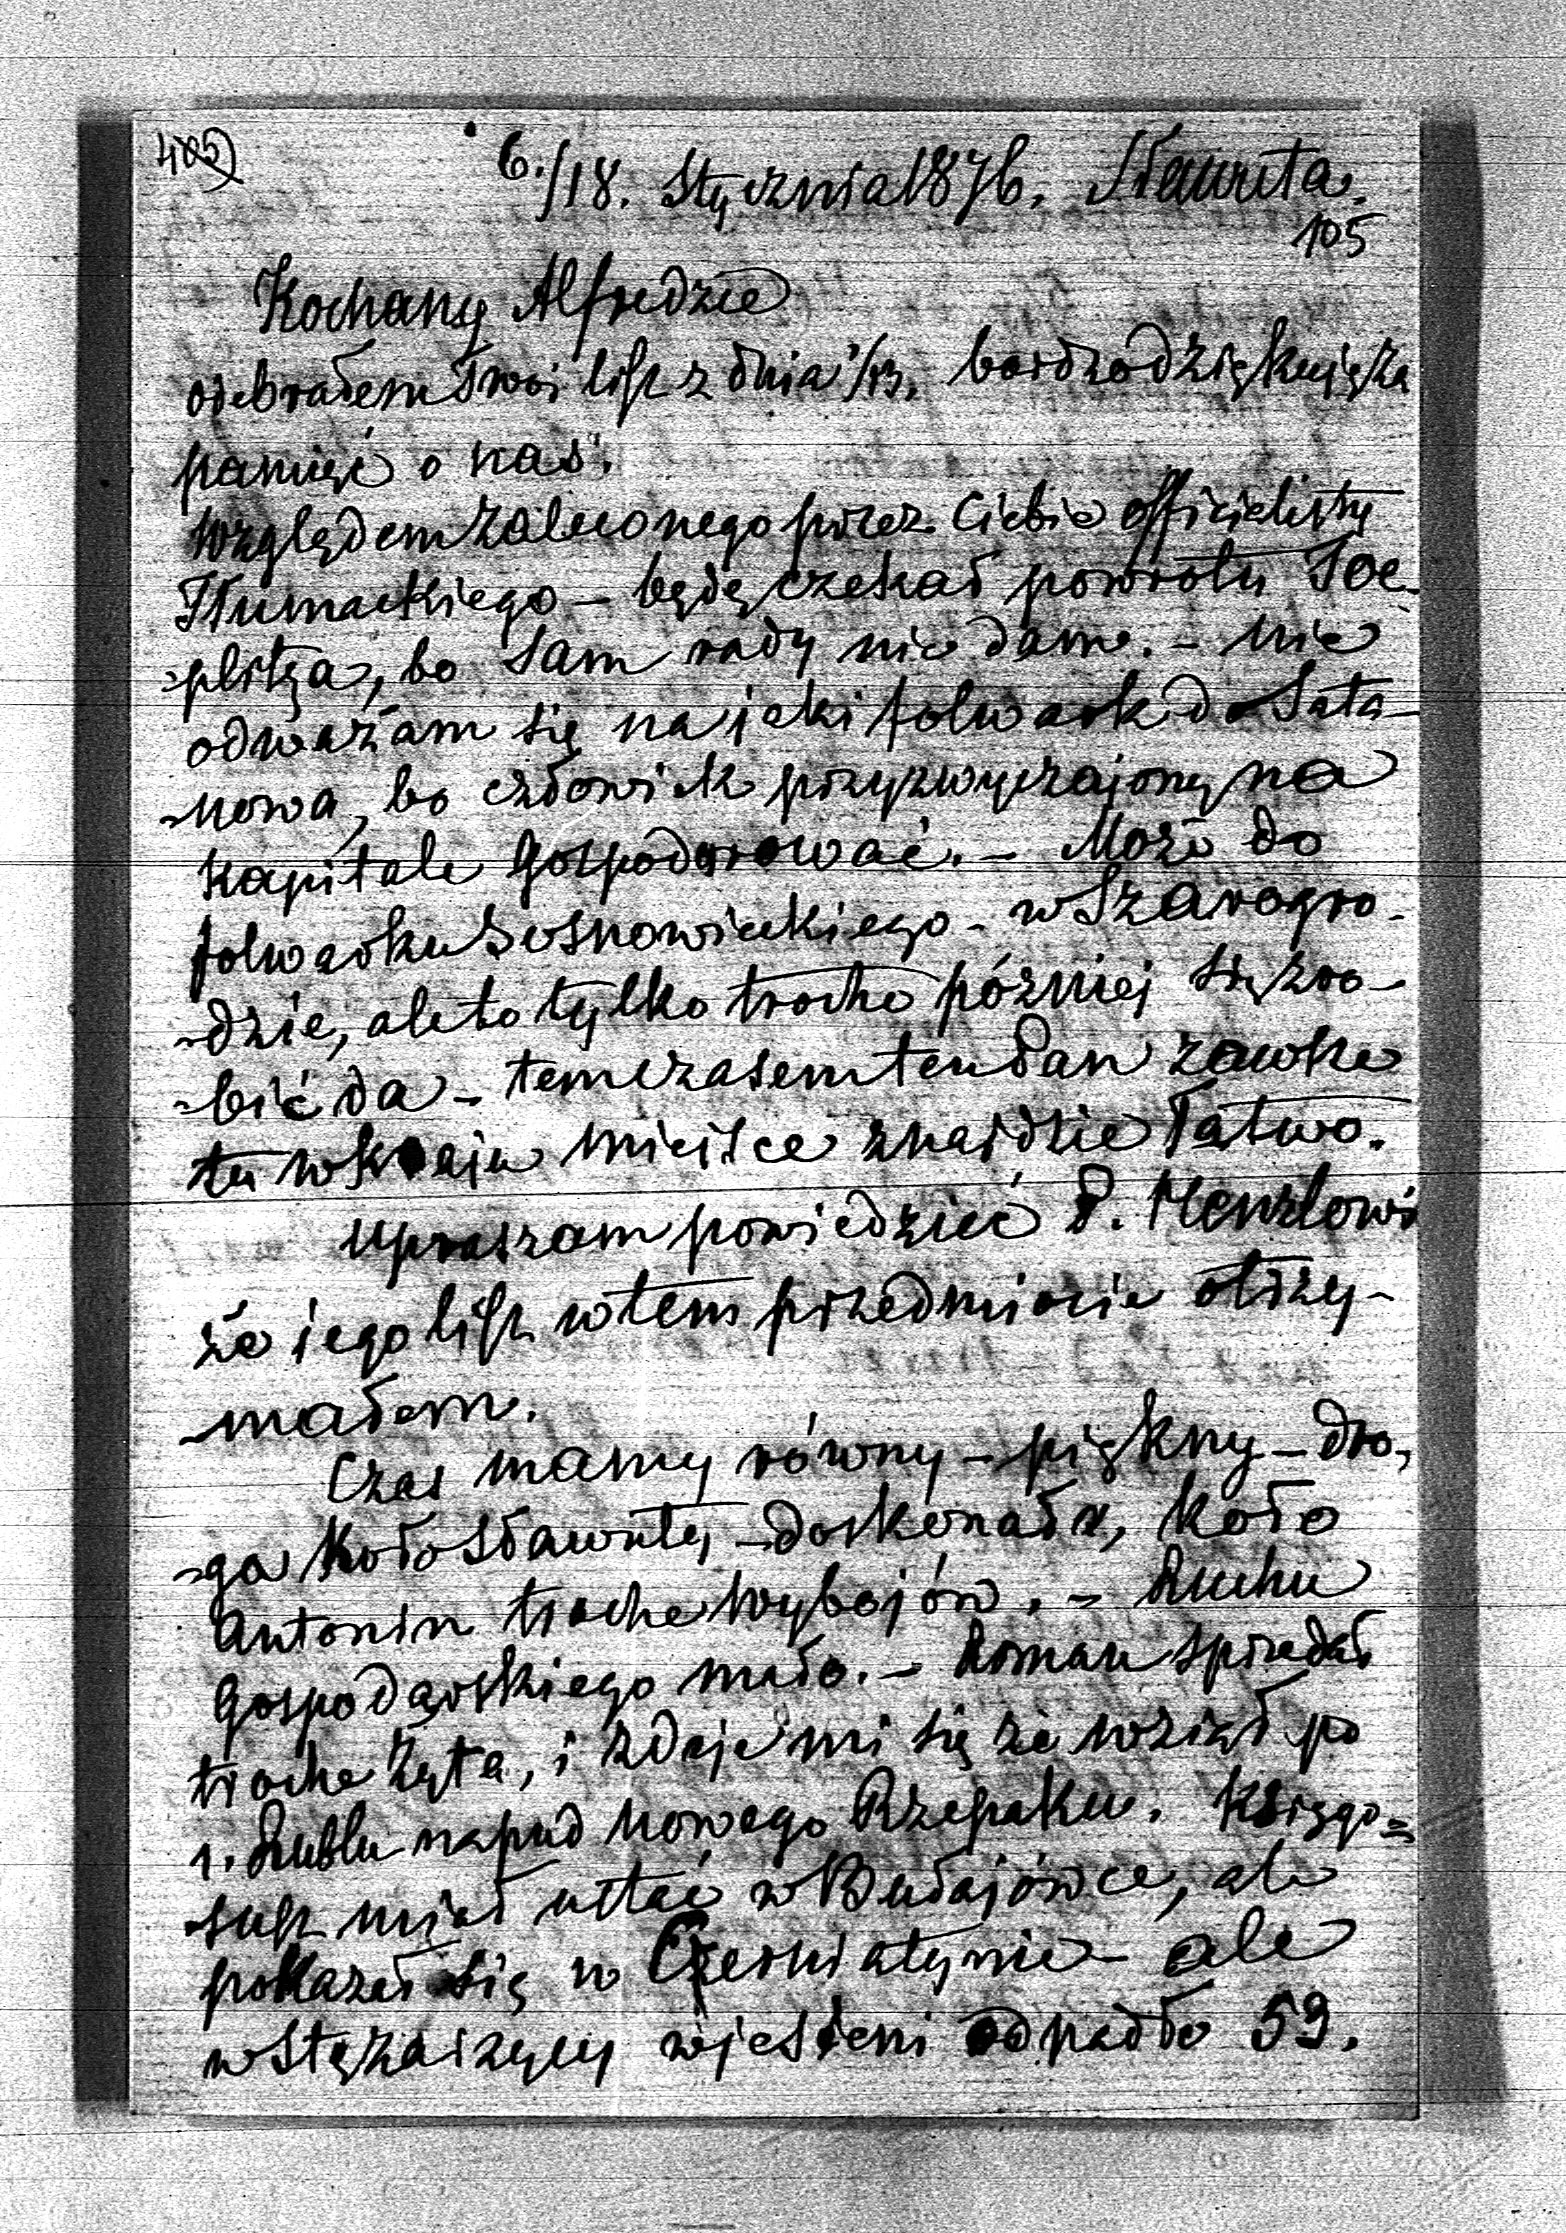 405
6./18. Stycznia 1876. Sławuta.
105
Kochany Alfredzie
odebrałem Twoi list z dnia 1/13. bardzo dziękuję za
pamięć o nas.
Względem zaleconego przez Ciebie officialisty
Tłumackiego – będę czekał powrotu Toe-
-plitza, bo sam rady nie dam. – Nie
odważam się na jaki folwark do Sata-
-nowa, bo człowiek przyzwyczajony na
Kapitale Gospodarować. – Może do
folwarku Sosnowieckiego – w Szarogro-
-dzie, ale to tylko troche później się zro-
-bić da – tem czasem ten Pan zawke
tu w kraju miejsce znajdzie łatwo.
Upraszam powiedzieć P. Menzlowi
że iego list w tem przedmiocie otrzy-
-małem.
Czas mamy równy – piękny – dro,
-ga koło Sławuty – doskonała, koło
Antonin troche wybojów. – Ruchu
Gospodarskiego mało. – Roman sprzedał
troche żyta, i zdaje mi się że wziął po
1. Rublu na pud nowego Rzepaku. Księgo=
susz miał ustać w Budajówce, ale
pokazał się w Czerniatynie – ale
w jesieni odpadło 59.